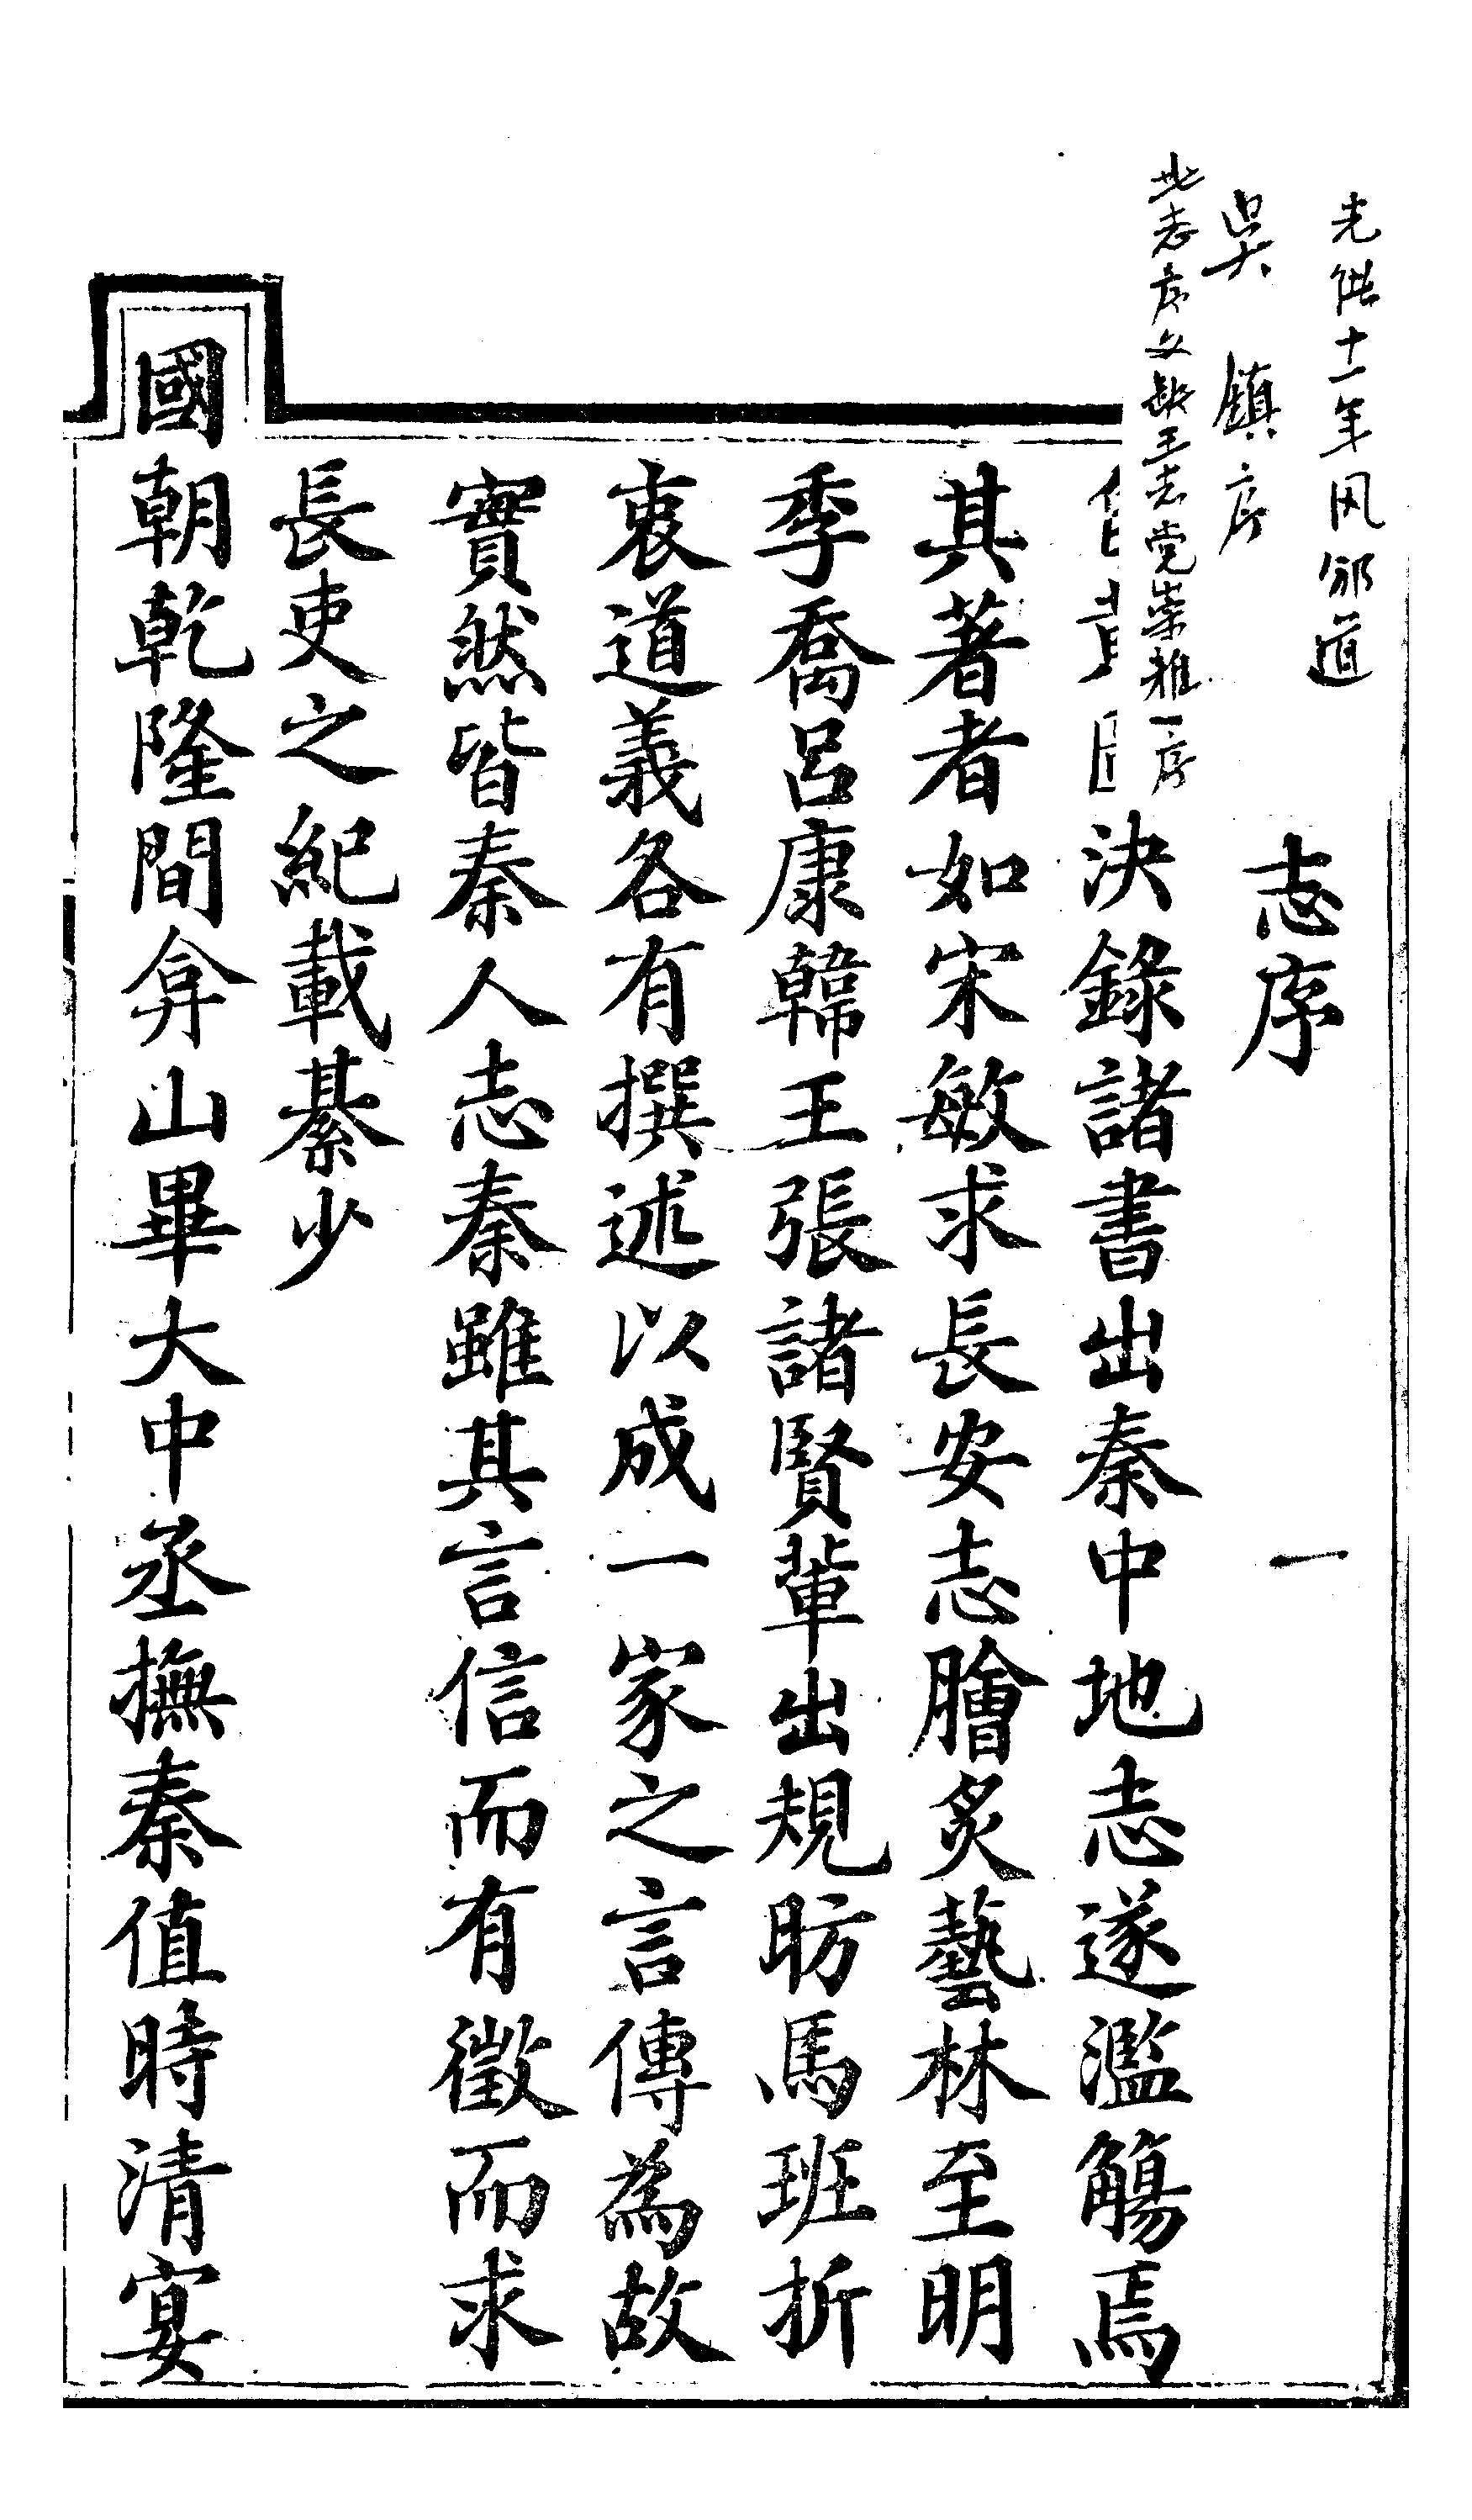 光緒十一年風邠道
吳鎮序
此志序文缺王志党崇雅一序
志序 一
決錄諸書出秦中地志遂濫觴焉
其著者如宋敏求長安志膾炙藝林至明
季喬呂康韓王張諸賢輩出規昉馬班折
衷道義各有撰述以成一家之言傳為故
實然皆秦人志秦雖其言信而有徵而求
長吏之紀載綦少
國朝乾隆間弇山畢大中丞撫秦值時清宴